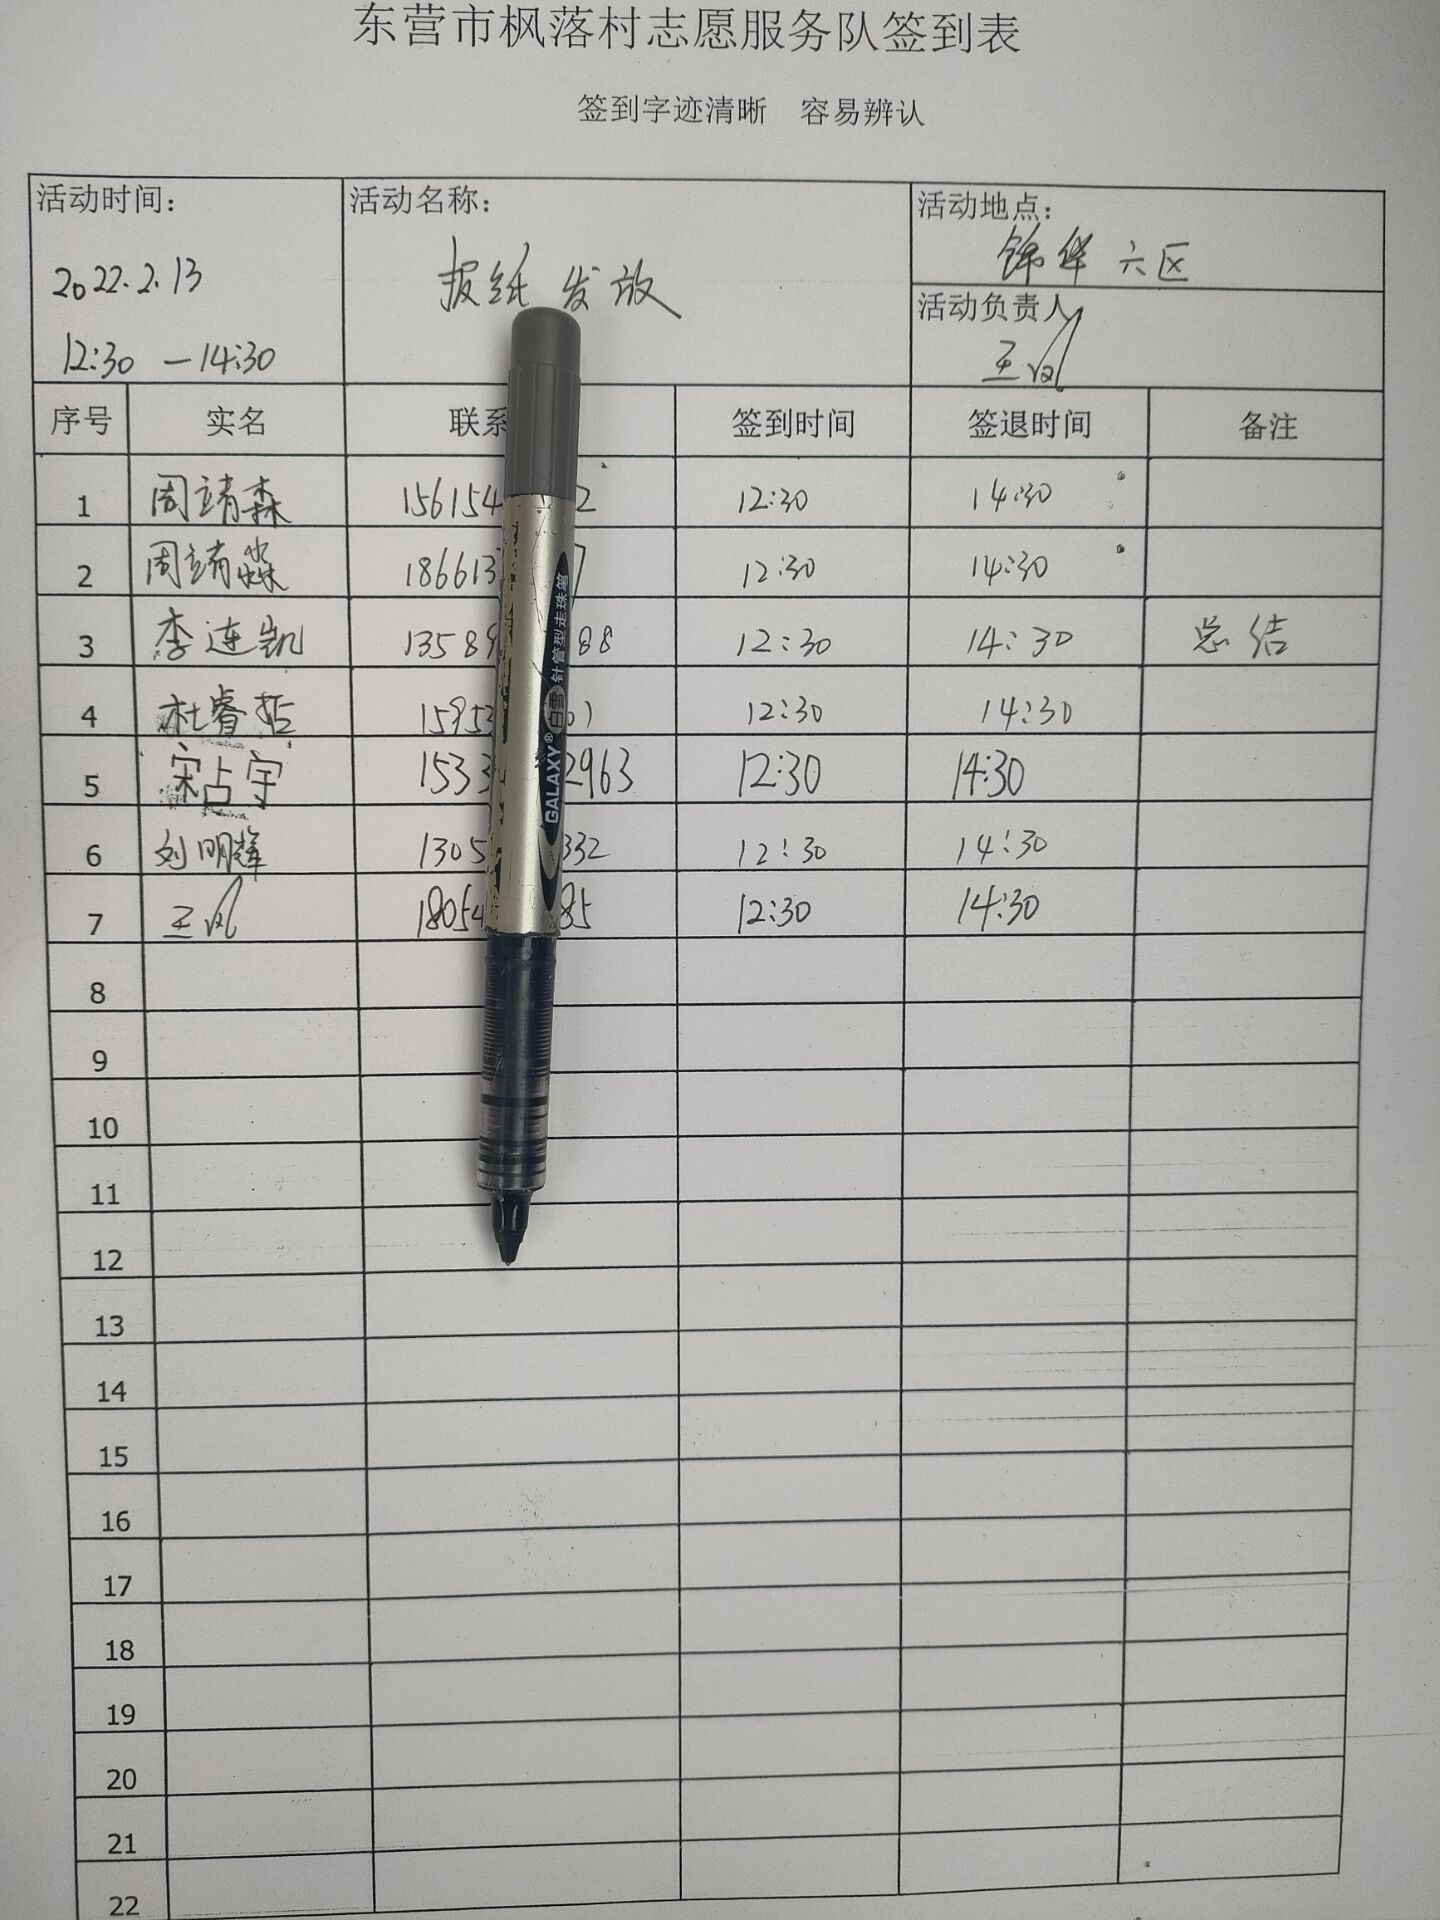 东营市枫落村志愿服务队签到表
签到字迹清晰 容易辨认
活动时间: 活动名称: 活动地点:
2022.2.13 报纸发放 锦华六区
12:30 —14:30 活动负责人
王风
序号 实名 联系 签到时间 签退时间 备注
1 周靖森 156154 2 12:30 14:30
2 周靖淼 186613 7 12:30 14:30
3 李连凯 13589 88 12:30 14:30 总结
4 杜睿哲 1595 61 12:30 14:30
5 宋占宇 1533 2963 12:30 14:30
6 刘明辉 1305 332 12:30 14:30
7 王风 18054 85 12:30 14:30
8
9
10
11
12
13
14
15
16
17
18
19
20
21
22
GALAXY® 白雪 针管型走珠笔